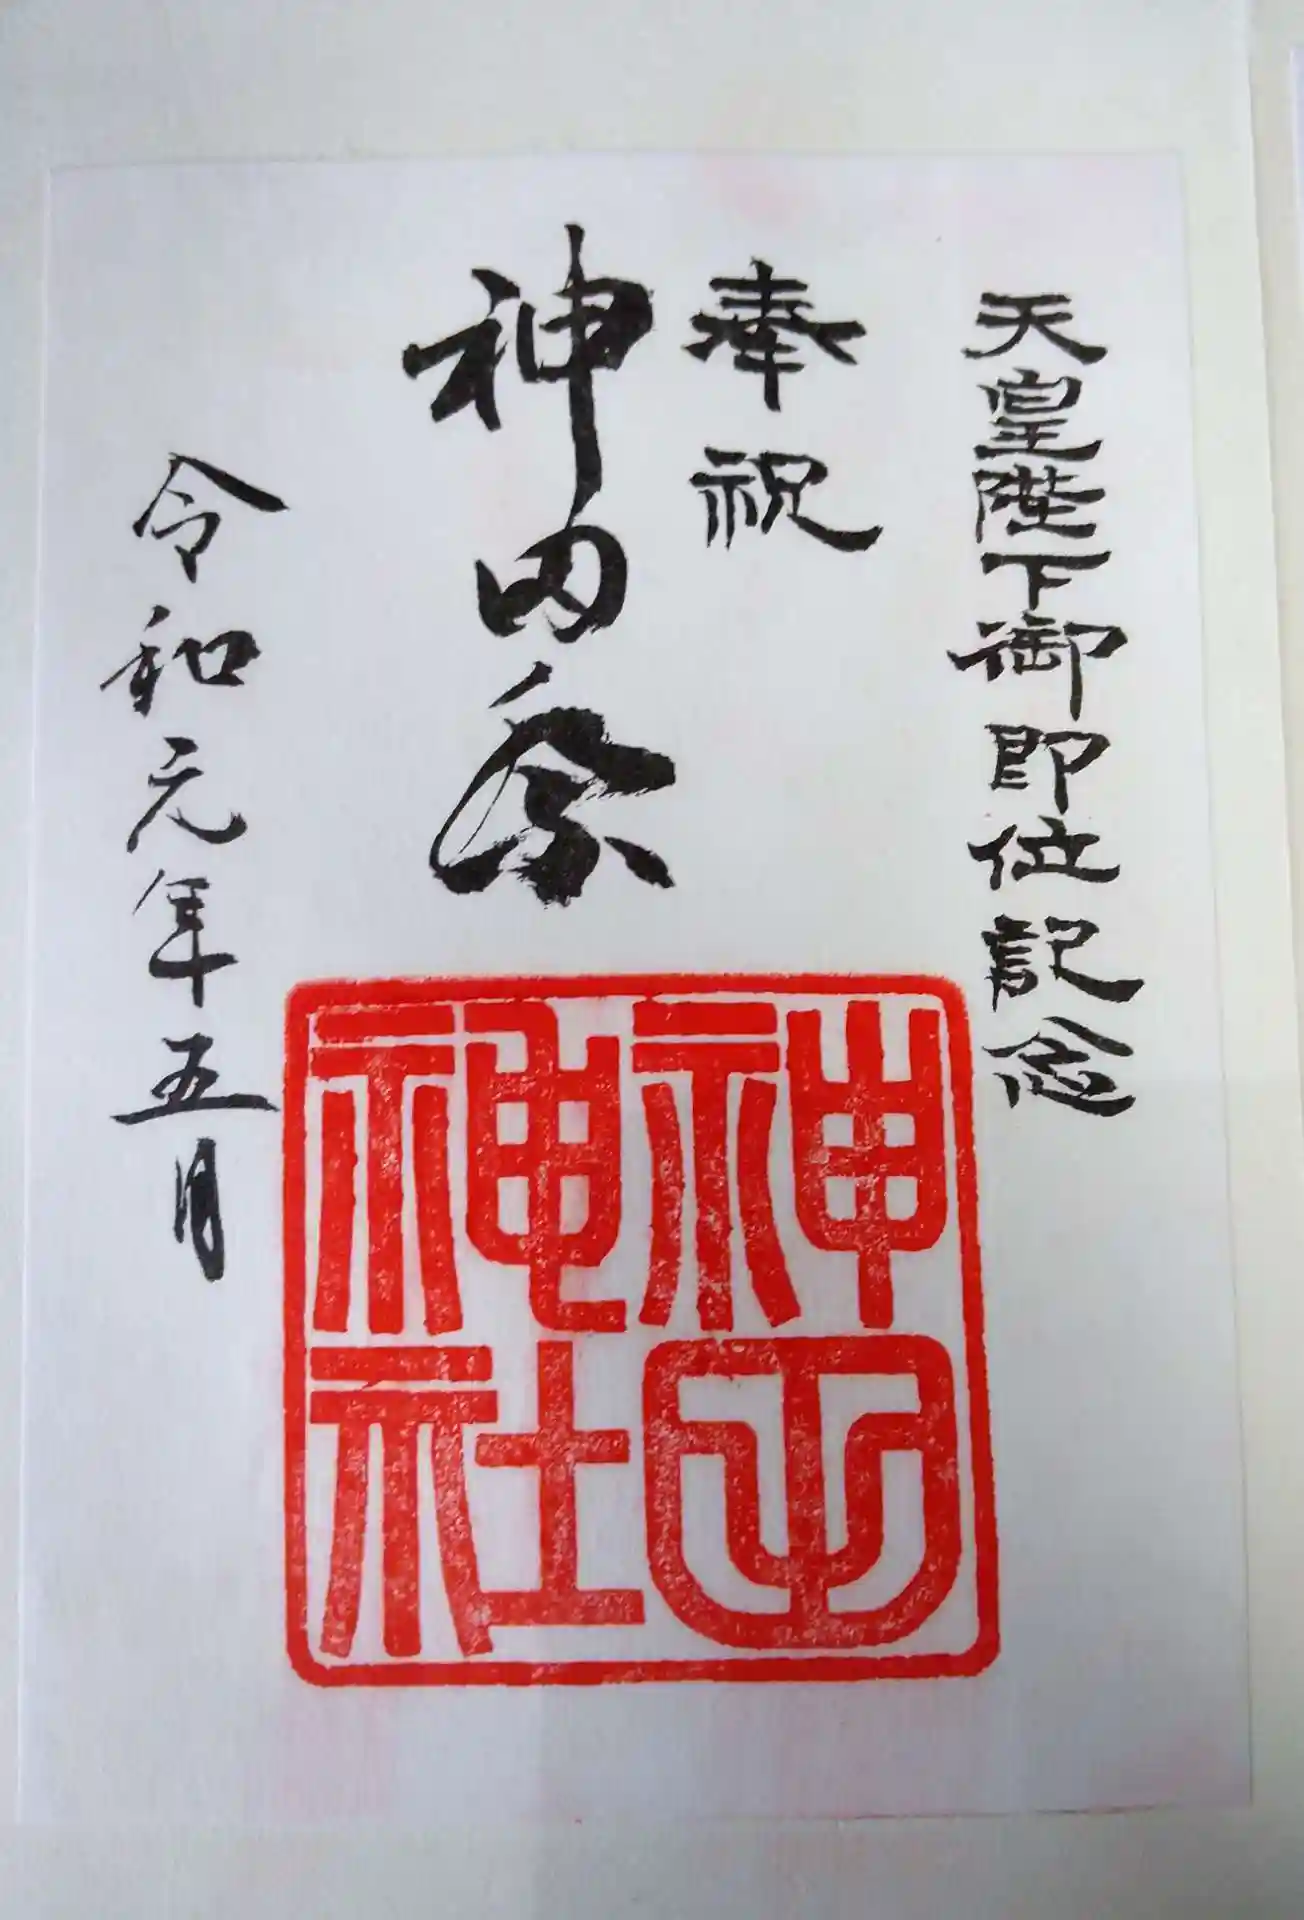 天皇陛下御即位記念
奉祝
神田祭
令和元年五月
神田
神社